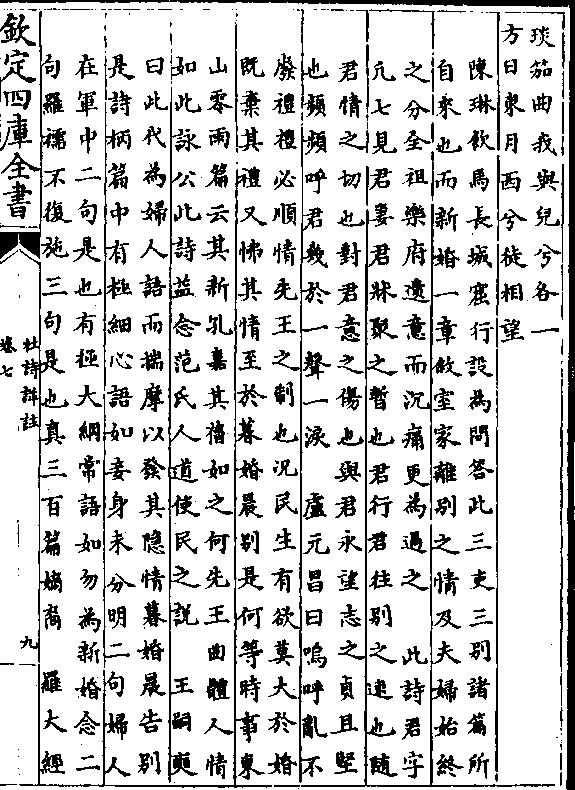 琰笳曲我與兒兮各一
方日東月西兮徒相望
陳琳飲馬長城窟行設為問答此三吏三别諸篇所
自來也而新婚一章敘室家離别之情及夫婦始終
之分全祖樂府遺意而沉痛更為過之 此詩君字
凡七見君妻君牀聚之暫也君行君往别之速也隨
君情之切也對君意之傷也與君永望志之貞且堅
也頻頻呼君幾於一聲一淚 盧元昌曰嗚呼亂不
廢禮禮必順情先王之制也况民生有欲莫大於婚
既棄其禮又怫其情至於暮婚晨别是何等時事東
山零雨篇云其新孔嘉其舊如之何先王曲體人情
如此詠公此詩益念范氏人道使民之説 王嗣奭
曰此代為婦人語而揣摩以發其隐情暮婚晨告别
是詩柄篇中有極細心語如妾身未分明二句婦人
在軍中二句是也有極大綱常語如勿為新婚念二
句羅襦不復施三句是也真三百篇嫡裔 羅大經
欽定四庫全書
杜詩詳註
卷七
九